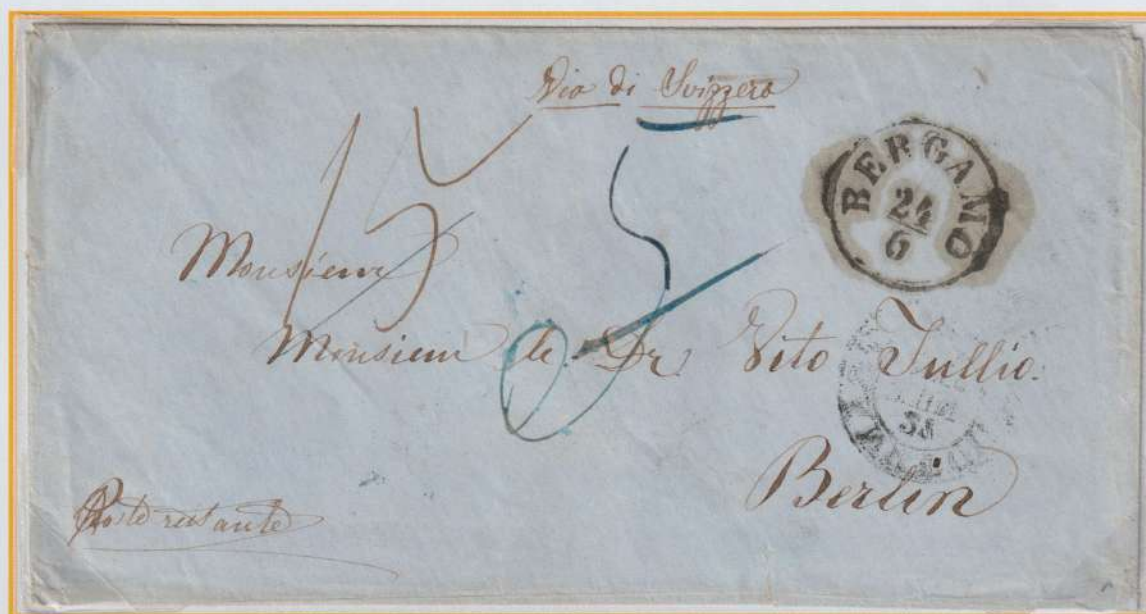 Via di Svizzera
BERGAMO
24
6
Monsieur
Monsieur le Dr Vito Tullio.
Berlin
Poste restante